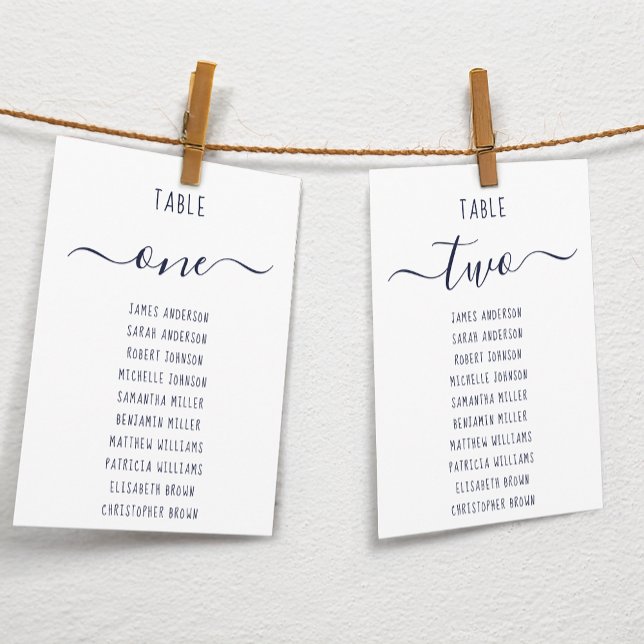 TABLE
one
JAMES ANDERSON
SARAH ANDERSON
ROBERT JOHNSON
MICHELLE JOHNSON
SAMANTHA MILLER
BENJAMIN MILLER
MATTHEW WILLIAMS
PATRICIA WILLIAMS
ELISABETH BROWN
CHRISTOPHER BROWN
TABLE
two
JAMES ANDERSON
SARAH ANDERSON
ROBERT JOHNSON
MICHELLE JOHNSON
SAMANTHA MILLER
BENJAMIN MILLER
MATTHEW WILLIAMS
PATRICIA WILLIAMS
ELISABETH BROWN
CHRISTOPHER BROWN